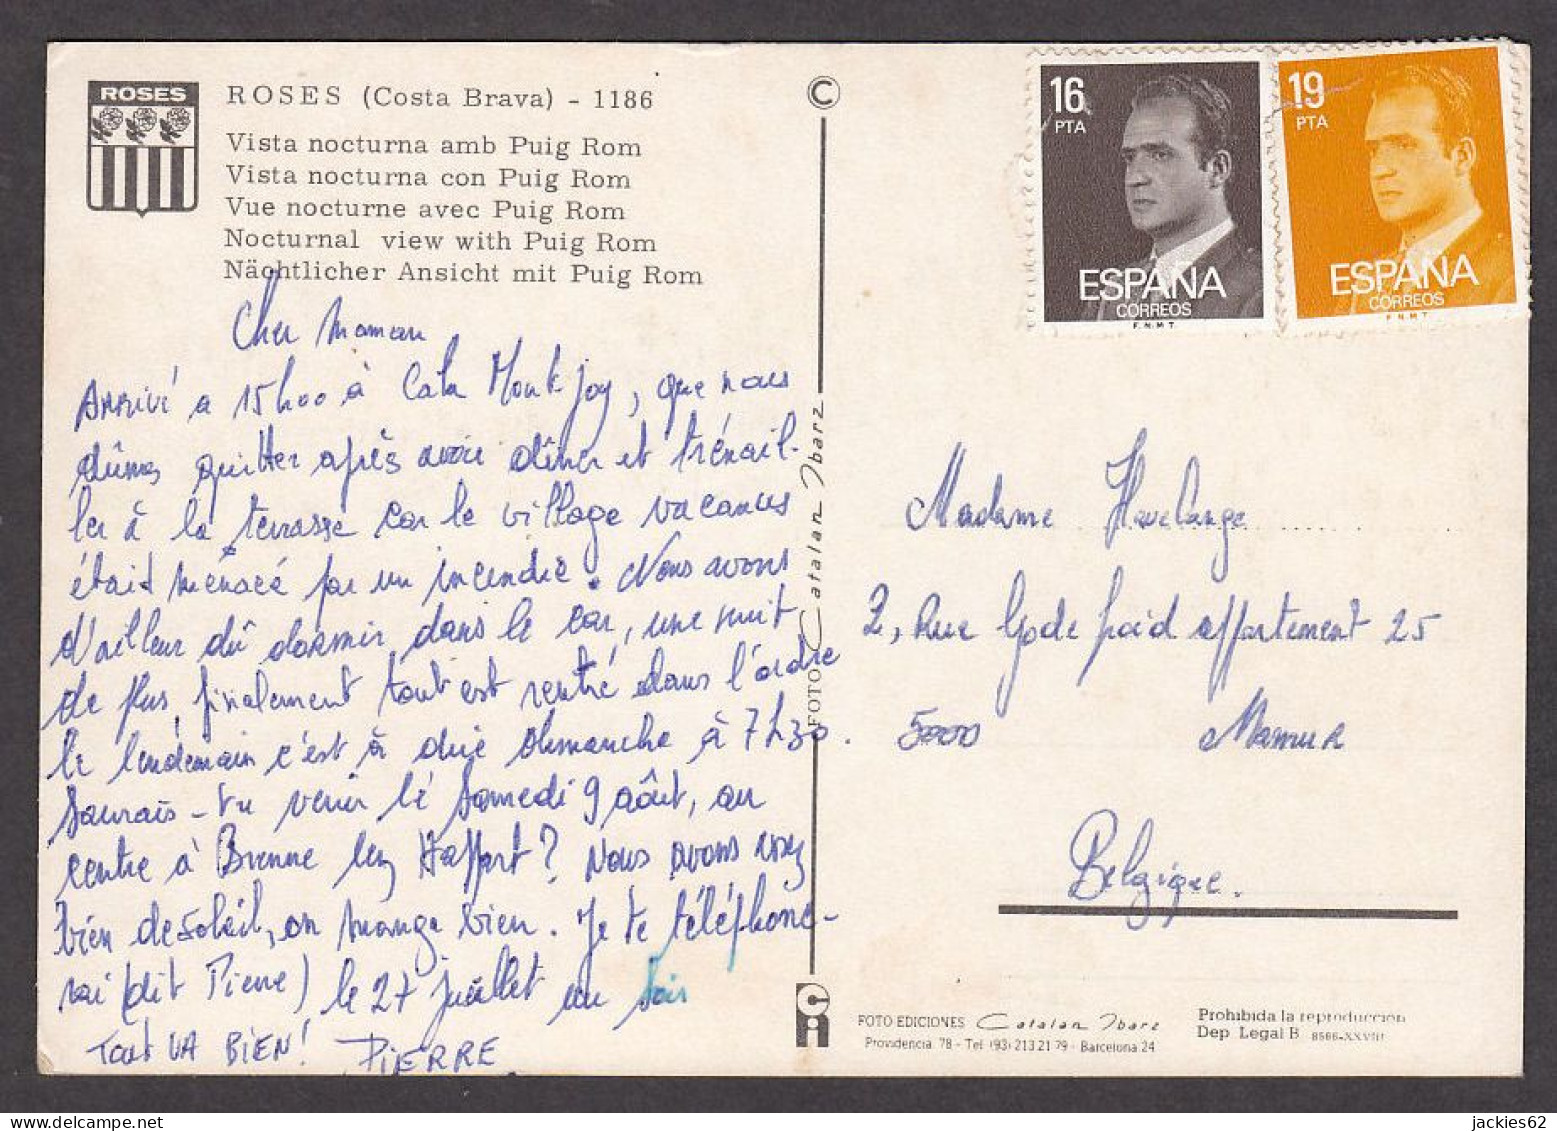 ROSES
ROSES (Costa Brava) - 1186
Vista nocturna amb Puig Rom
Vista nocturna con Puig Rom
Vue nocturne avec Puig Rom
Nocturnal view with Puig Rom
Nächtlicher Ansicht mit Puig Rom
Cher Maman
ARRIVÉ a 15h00 à Cala Montjoy, que nous
dûmes quitter après avoir dîner et trénail-
ler à la terrasse car le village vacances
était ménacé par un incendie. Nous avons
d'ailleur dû dormir dans le car, une nuit
de plus, finalement tout est rentré dans l'ordre
le lendemain c'est à dire dimanche à 7h30.
Saurais-tu venir le samedi 9 août, au
centre à Brenne ley Happart? Nous avons
bien de soleil, on mange bien. Je te téléphone-
rai (dit Pierre) le 27 juillet au soir
Tout VA BIEN! PIERRE
©
FOTO Catalan Ibarz
16
PTA
ESPAÑA
CORREOS
F.N.M.T.
19
PTA
ESPAÑA
CORREOS
F.N.M.T.
Madame Havelange
2, Rue Gode froid appartement 25
5000 Namur
Belgique.
FOTO EDICIONES Catalan Ibarz
Providencia, 78 - Tel (93) 213 21 79 - Barcelona 24
Prohibida la reproducción
Dep Legal B 8566-XXVIII
jackies62